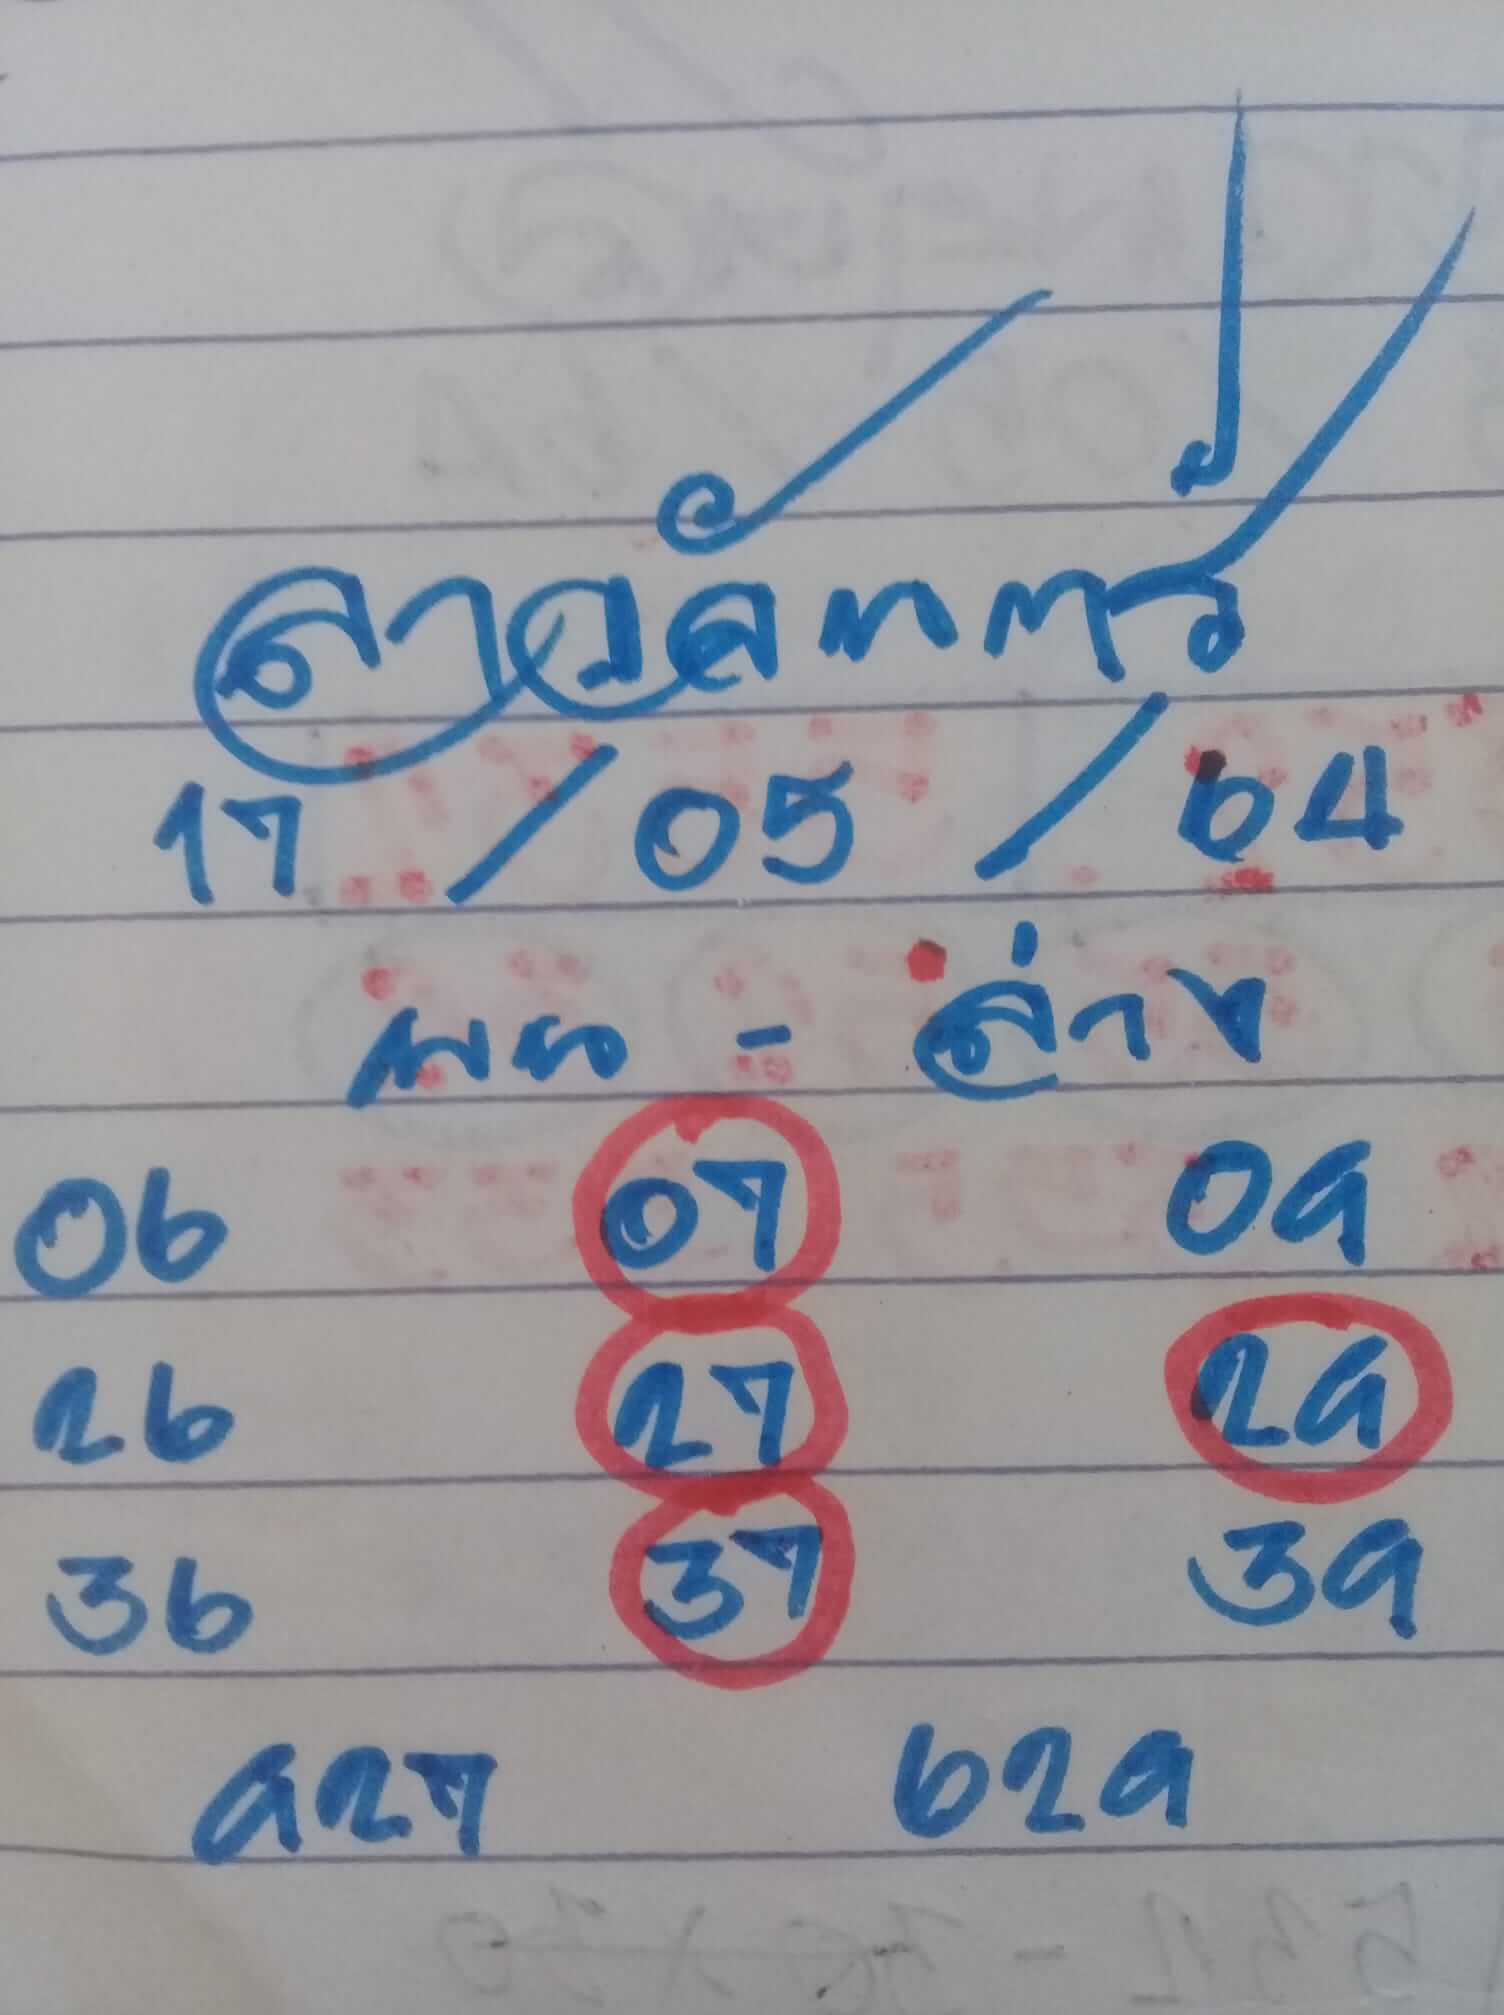 ลาวจันทร์
17/05/64
บน - ล่าง
06 07 09
26 27 29
36 37 39
927 629